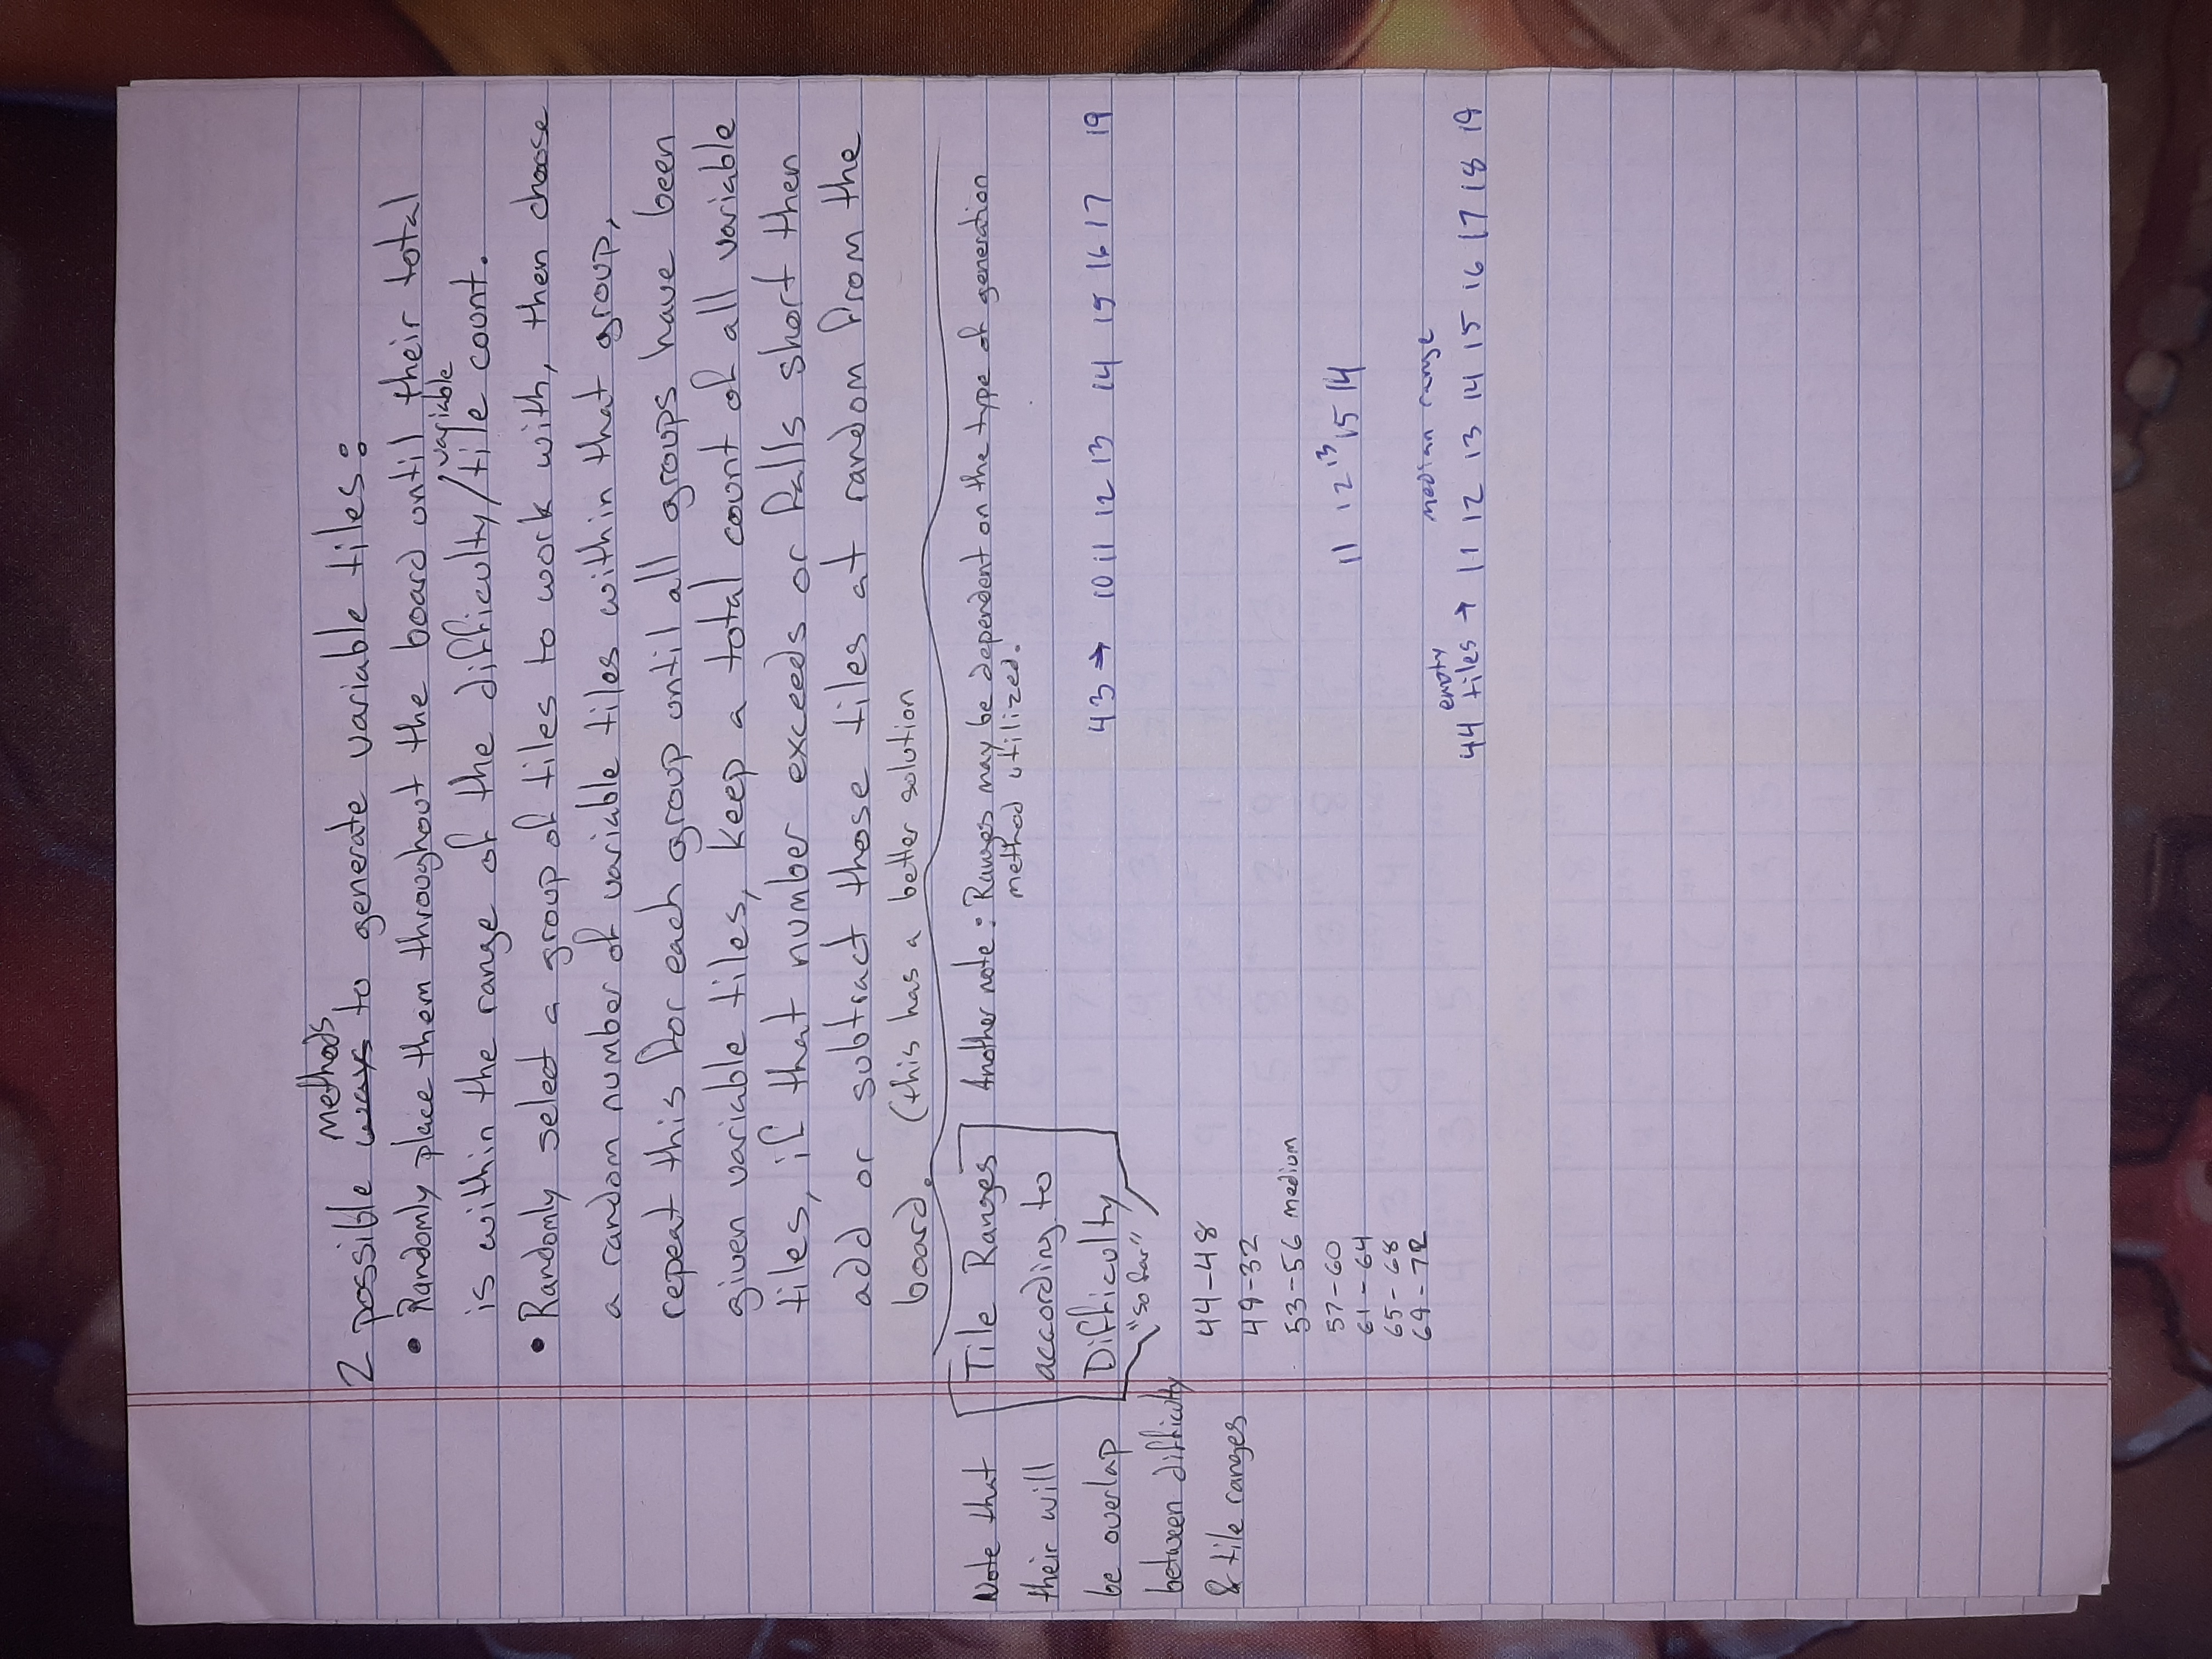 methods
2 possible ways to generate variable tiles:
• Randomly place them throughout the board until their total
variable
is within the range of the difficulty/tile count.
• Randomly select a group of tiles to work with, then choose
a random number of variable tiles within that group,
repeat this for each group until all groups have been
given variable tiles, keep a total count of all variable
tiles, if that number exceeds or falls short then
add or subtract those tiles at random from the
board. (this has a better solution
Note that
their will
be overlap
between difficulty
& tile ranges
Tile Ranges
according to
Difficulty
"so far"
44-48
49-32
53-56 medium
57-60
61-64
65-68
69-72
Another note: Ranges may be dependent on the type of generation
method utilized.
43 → 10 11 12 13 14 15 16 17 19
11 12 13 15 14
empty median range
44 tiles → 11 12 13 14 15 16 17 18 19